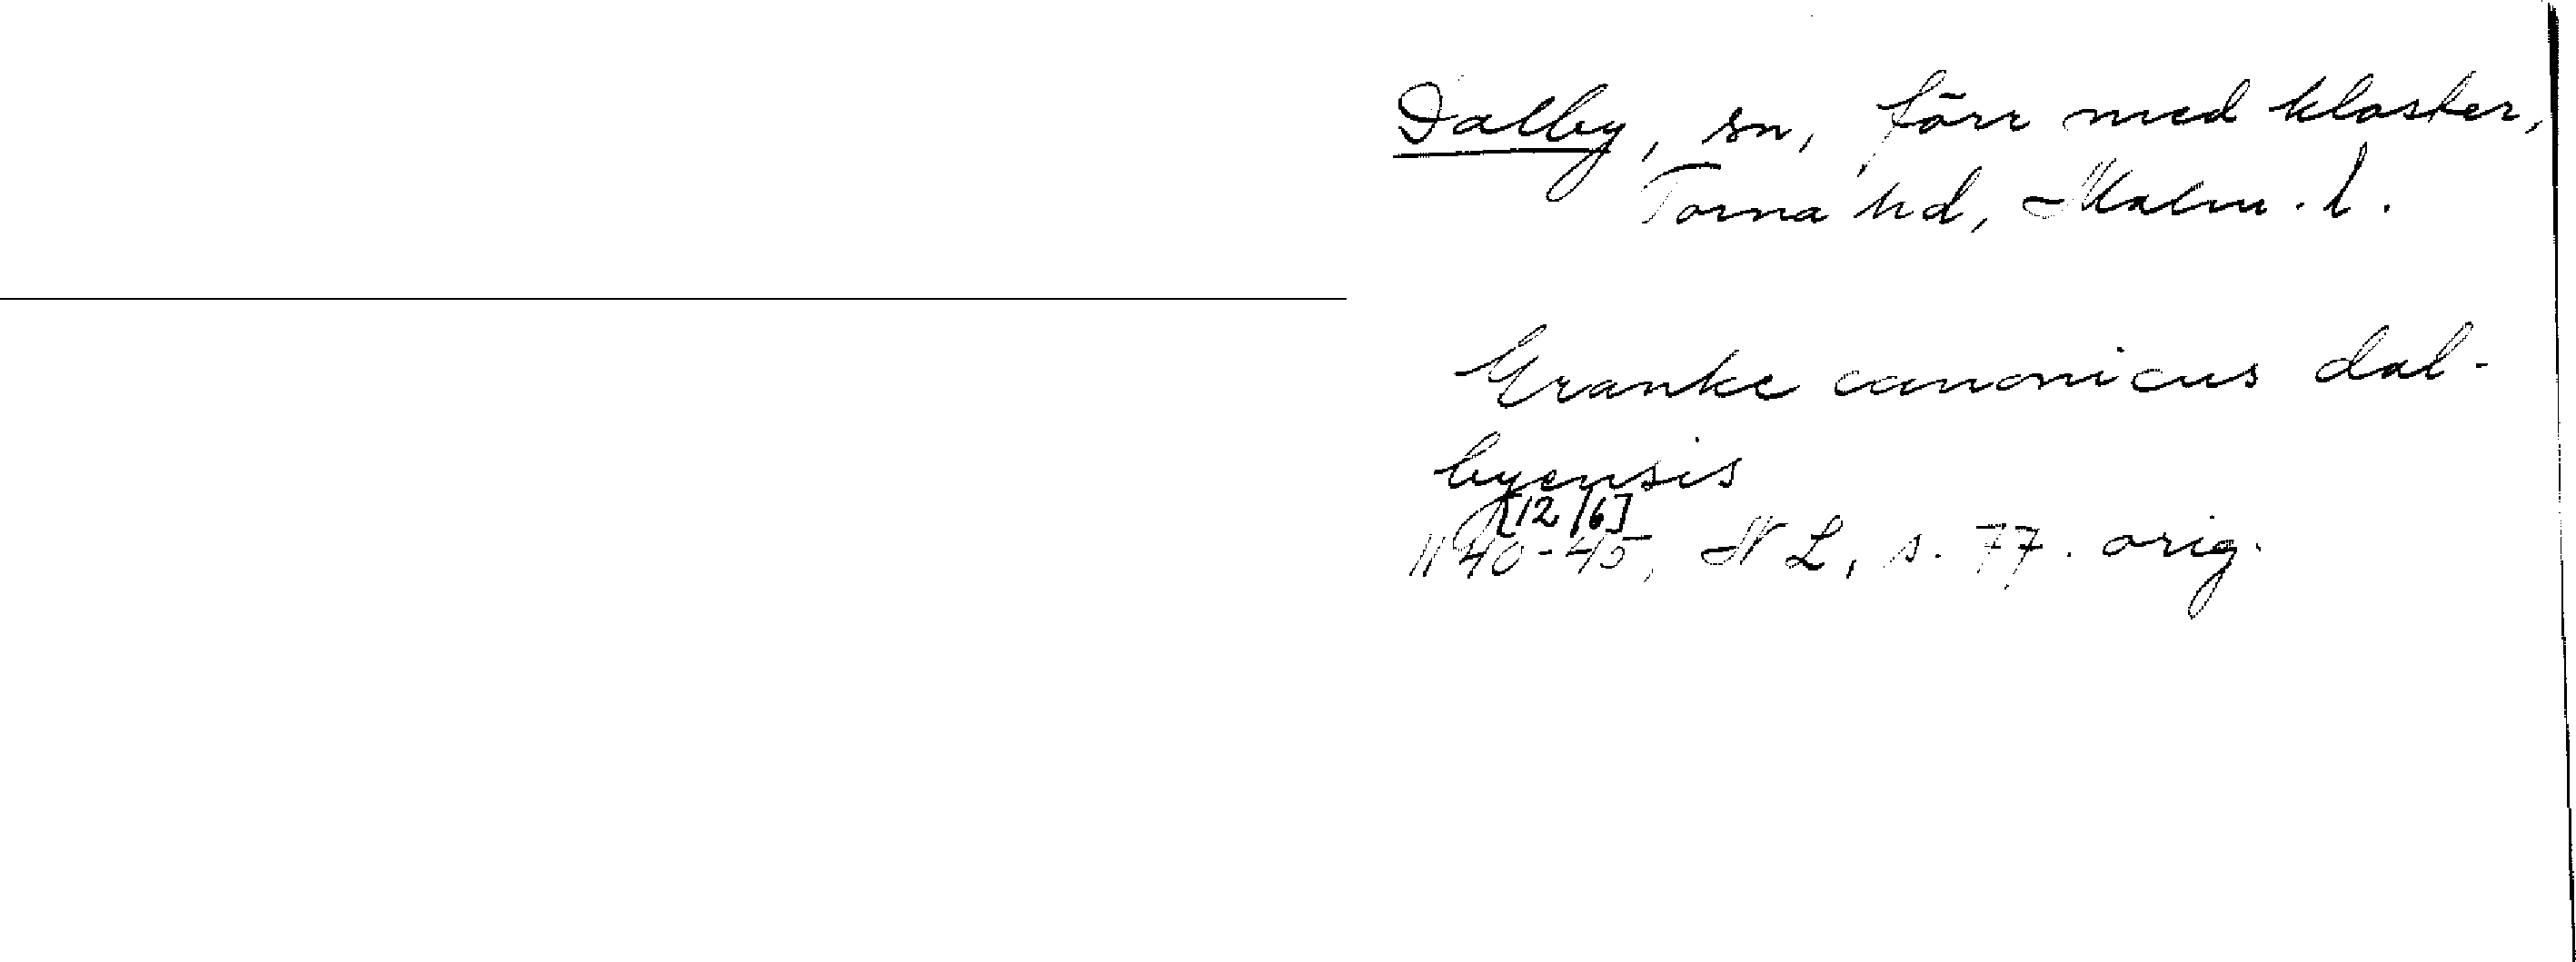 Dalby, sn, förr med kloster,
Torna hd, Malm. l.
Granke canonicus dal-
byensis
[12/6]
1140-45, N L, s. 77. orig.